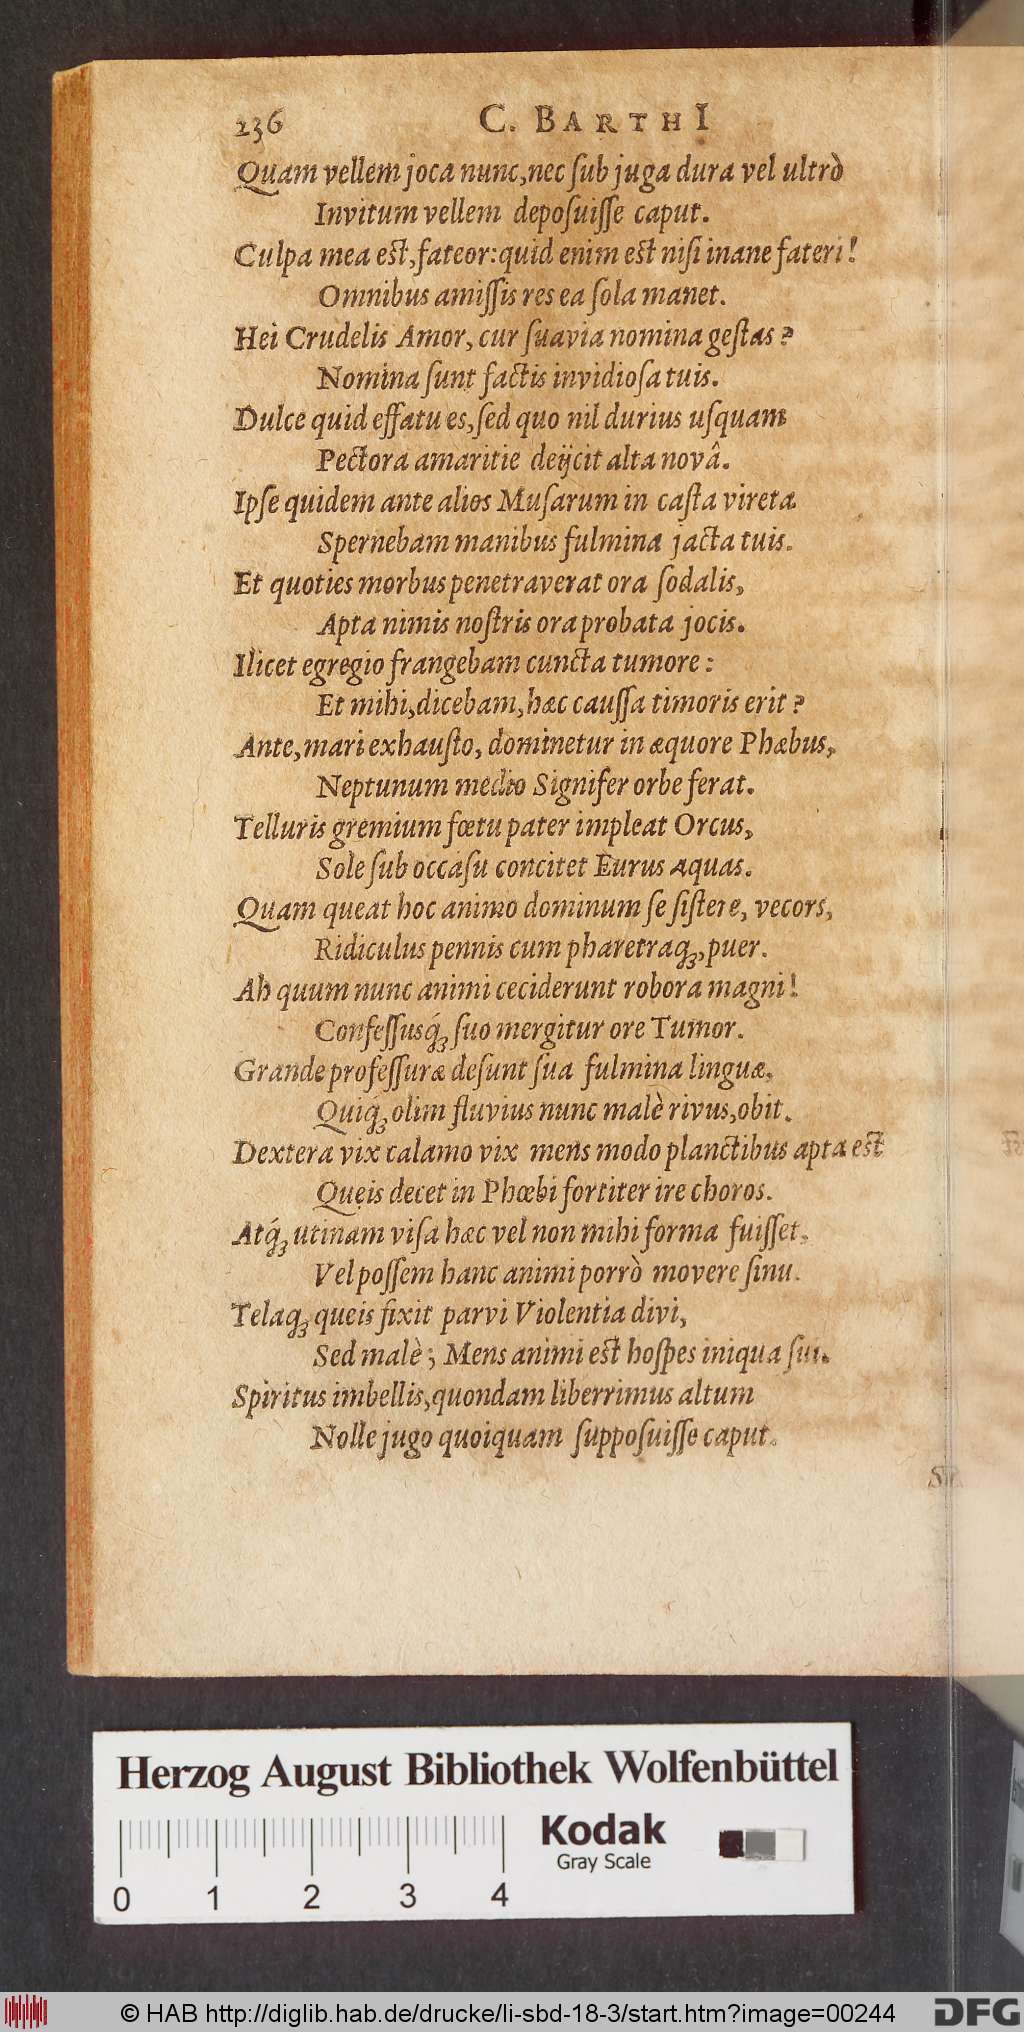 236 C. BARTHI
Quam vellem joca nunc, nec ſub juga dura vel ultrò
Invitum vellem depoſuiſſe caput.
Culpa mea est, fateor: quid enim est niſi inane fateri!
Omnibus amiſſis res ea ſola manet.
Hei Crudelis Amor, cur ſuavia nomina geſtas?
Nomina ſunt factis invidioſa tuis.
Dulce quid effatu es, ſed quo nil durius uſquam
Pectora amaritie deijcit alta novâ.
Ipſe quidem ante alios Muſarum in caſta vireta
Spernebam manibus fulmina jacta tuis.
Et quoties morbus penetraverat ora ſodalis,
Apta nimis noſtris ora probata jocis.
Ilicet egregio frangebam cuncta tumore:
Et mihi, dicebam, hæc cauſſa timoris erit?
Ante, mari exhauſto, dominetur in æquore Phœbus,
Neptunum medio Signifer orbe ferat.
Telluris gremium fœtu pater impleat Orcus,
Sole ſub occaſu concitet Eurus aquas.
Quam queat hoc animo dominum ſe ſiſtere, vecors,
Ridiculus pennis cum pharetraq́;, puer.
Ah quum nunc animi ceciderunt robora magni!
Confeſſusq́; ſuo mergitur ore Tumor.
Grande profeſſuræ deſunt ſua fulmina linguæ.
Quiq́; olim fluvius nunc malè rivus, obit.
Dextera vix calamo vix mens modo planctibus apta est
Queis decet in Phœbi fortiter ire choros.
Atq́; utinam viſa hæc vel non mihi forma fuiſſet.
Vel poſſem hanc animi porrò movere ſinu.
Telaq; queis fixit parvi Violentia divi,
Sed malè; Mens animi est hoſpes iniqua ſui.
Spiritus imbellis, quondam liberrimus altum
Nolle jugo quoiquam ſuppoſuiſſe caput.
Herzog August Bibliothek Wolfenbüttel
Kodak
Gray Scale
0 1 2 3 4
© HAB http://diglib.hab.de/drucke/li-sbd-18-3/start.htm?image=00244
DFG